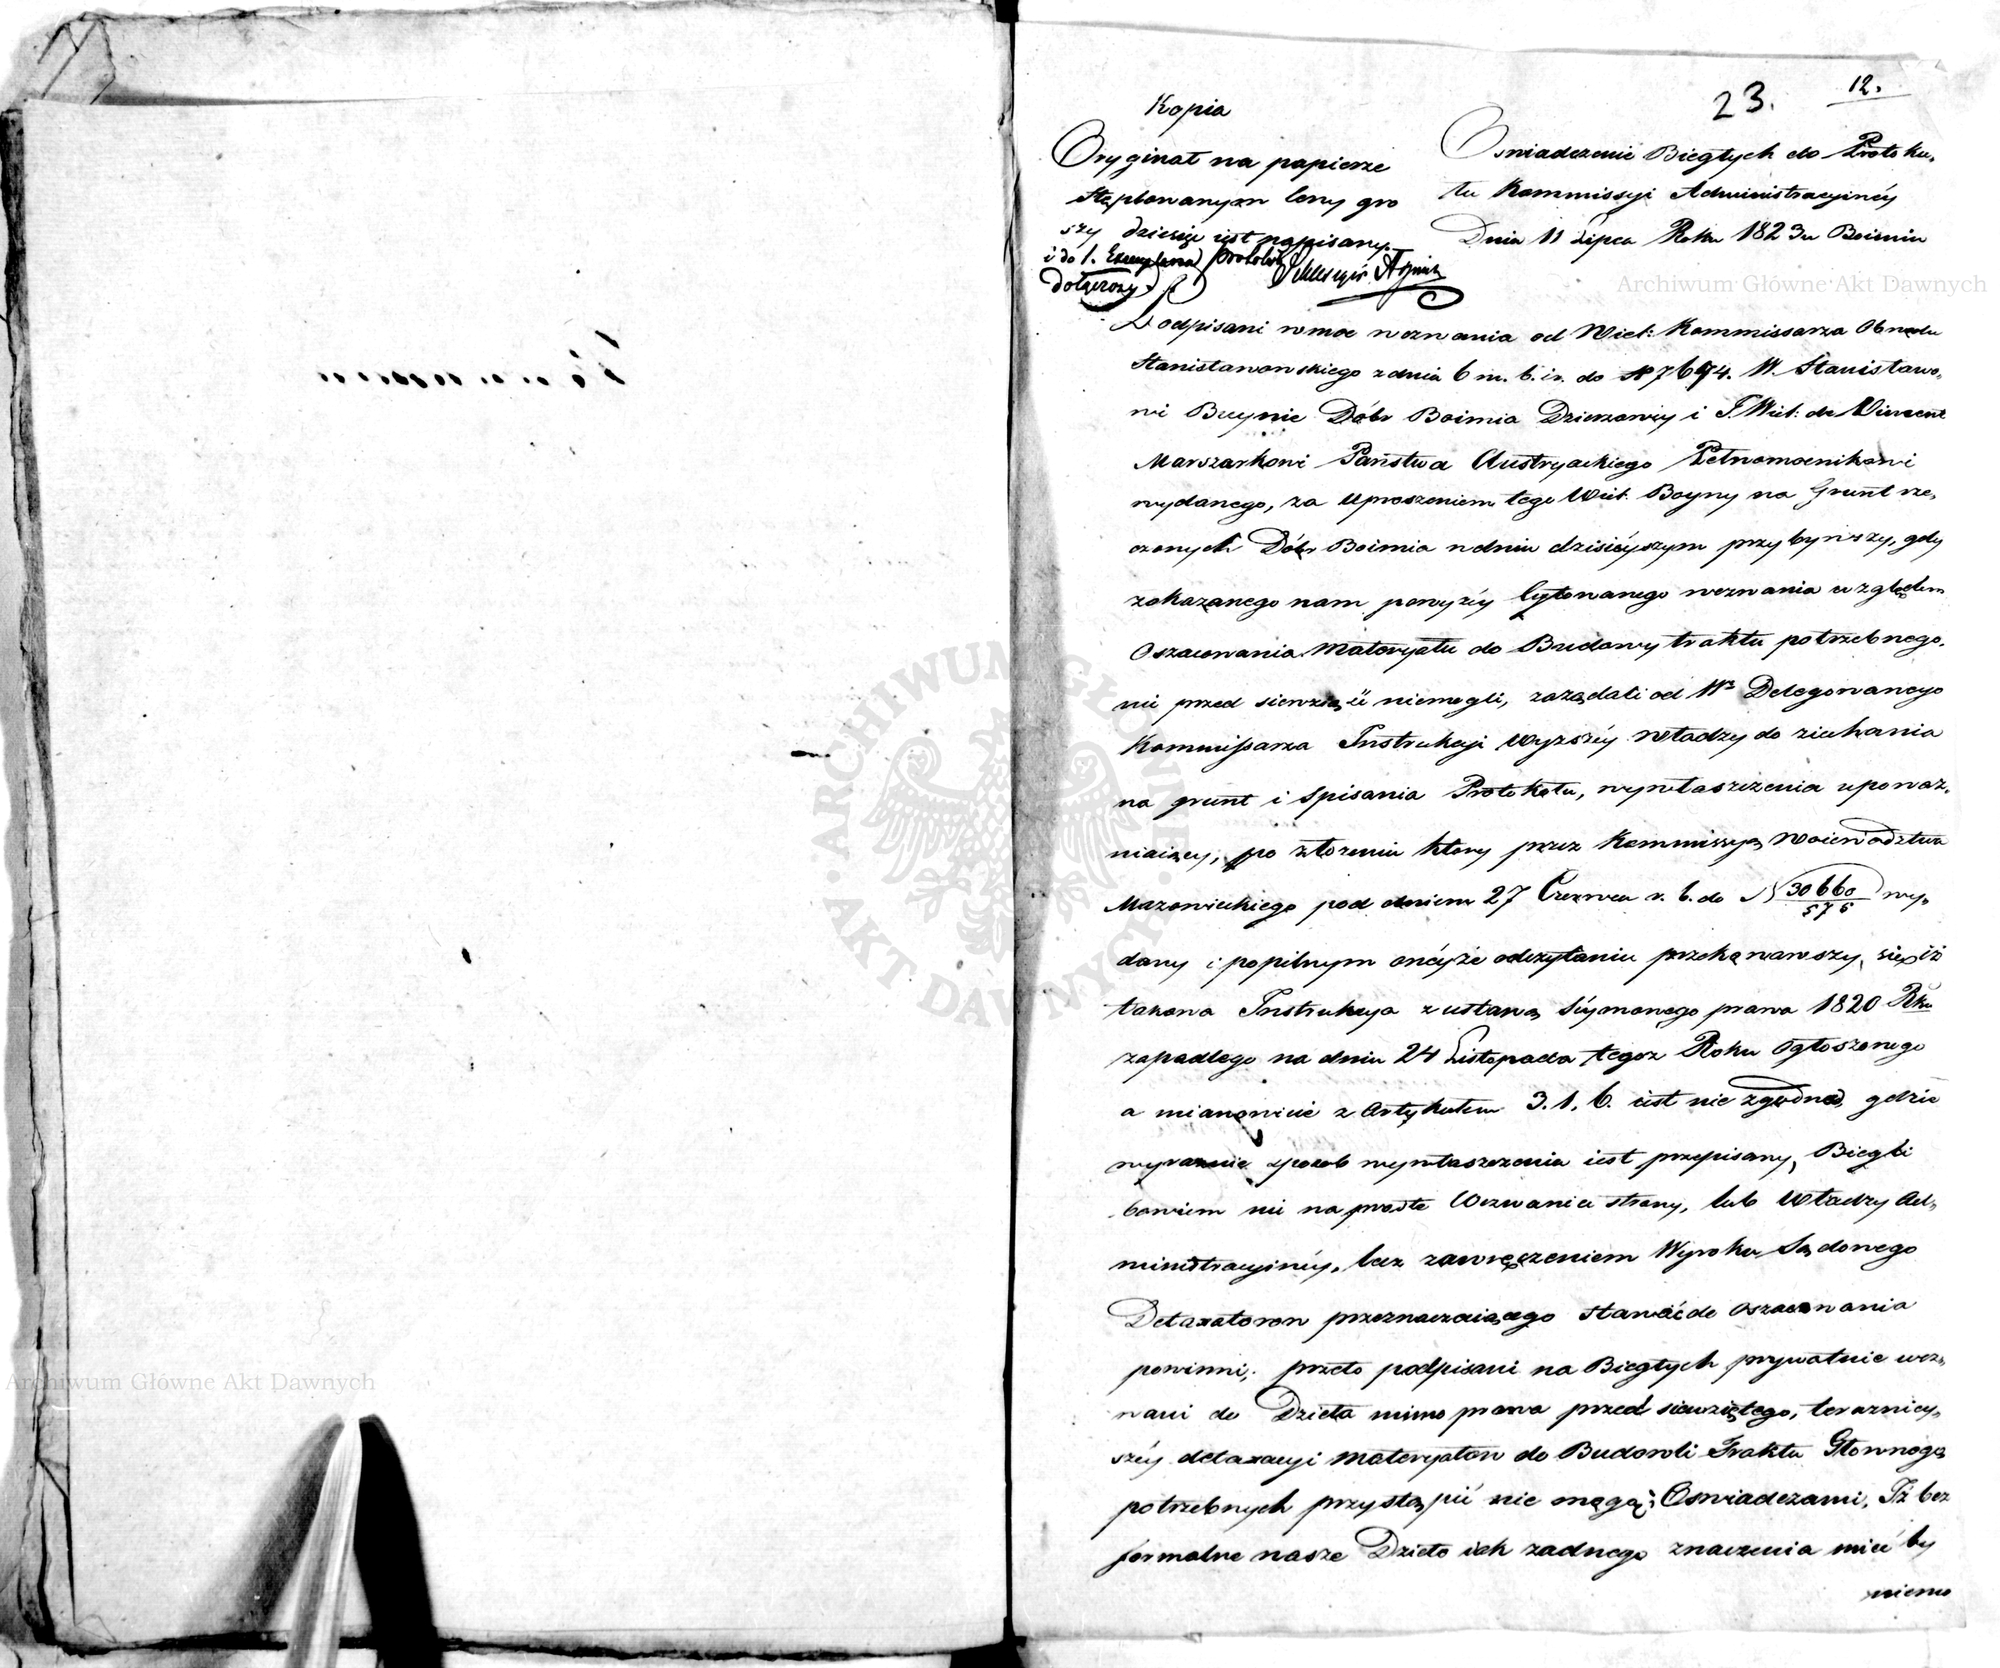 23.
12.
Kopia
Oryginał na papierze
Stęplowanym Ceny gro
szy dziesięć iest napisany
i do 1. Exemplarza Protokołu
dołączony
Oswiadczenie Biegłych do Protoku,
łu Kommissyi Administracyinéy
Dnia 11 Lipca Roku 1823 w Boimiu
Podpisani w moc wezwania od Wiel: Kommissarza Obwodu
Stanisławowskiego z dnia 6 m. b. i r. do N 7694. W. Stanisławo,
wi Boynie Dóbr Boimia Dzierzawcy i J. Wiel: de Vincent
Marszałkowi Państwa Austryackiego Pełnomocnikowi
wydanego, za uproszeniem tego Wiel. Boyny na Grunt rze,
czonych Dóbr Boimia w dniu dzisiéyszym przybywszy, gdy
zokazanego nam powyżéy Cytowanego wezwania względem
Oszacowania Materyału do Budowy traktu potrzebnego.
nic przed siewziąść niemogli, zażądali od Wo Delegowanego
Kommissarza Instrukcyi Wyższéy władzy do ziechania
na grunt i Spisania Protokołu, wywłaszczenia upoważ,
niaiącey, po złożeniu ktory przez Kommissyą Woiewództwa
Mazowieckiego pod dniem 27 Czerwca r. b. do N 30660/576 wy,
dany i popilnym onéyże odczytaniu przekonawszy się iż
takowa Instrukcya z ustawą Séymowego prawa 1820 Rku
zapadłego na dniu 24 Listopada tegoz Roku Ogłoszonego
a mianowicie z Artykułem 3. 1. 6. iest nie zgodną, gdzie
wyraznie sposob wywłaszczenia iest przepisany, Biegli
bowiem nie na proste Wezwanie strony, lub Władzy Ad,
ministracyinéy, lecz zawręczeniem Wyroku Sądowego
Detaxatorow przeznaczaiącego Stawać do Oszacowania
powinni; przeto podpisani na Biegłych prywatnie wez,
wani do Dzieła mimo prawa przed siewziętego, terazniey,
széy detaxacyi Materyałow do Budowli Traktu Głownego
potrzebnych przystąpić nie mogą; Oswiadczami, Iż bez
formalne nasze Dzieło iak zadnego znaczenia mieć by
niemo
Archiwum Główne Akt Dawnych
Archiwum Główne Akt Dawnych
ARCHIWUM GŁÓWNE AKT DAWNYCH